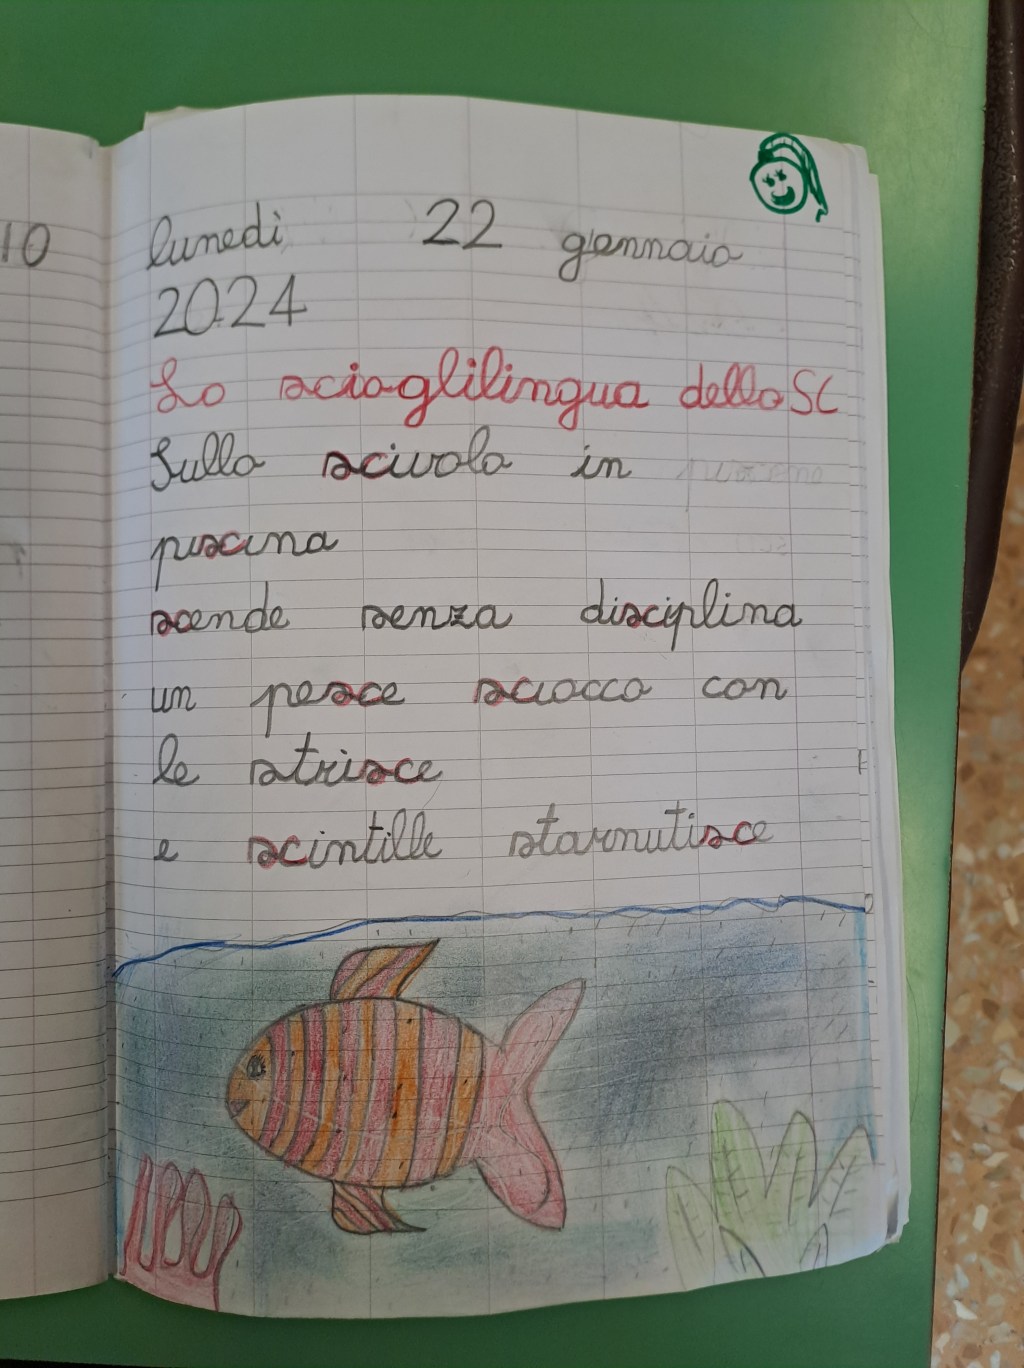 10
lunedì 22 gennaio
2024
Lo scioglilingua dello SC
Sullo scivolo in
piscina
scende senza disciplina
un pesce sciocco con
le strisce
e scintille starnutisce